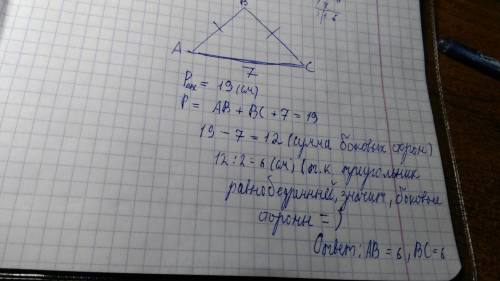 B
A
C
7
P = 19 (см)
P = AB + BC + 7 = 19
19 - 7 = 12 (сумма боковых сторон)
12 : 2 = 6 (см) (т.к. триугольник
равнобедренный, значит, боковые
стороны = )
Ответ: AB = 6, BC = 6